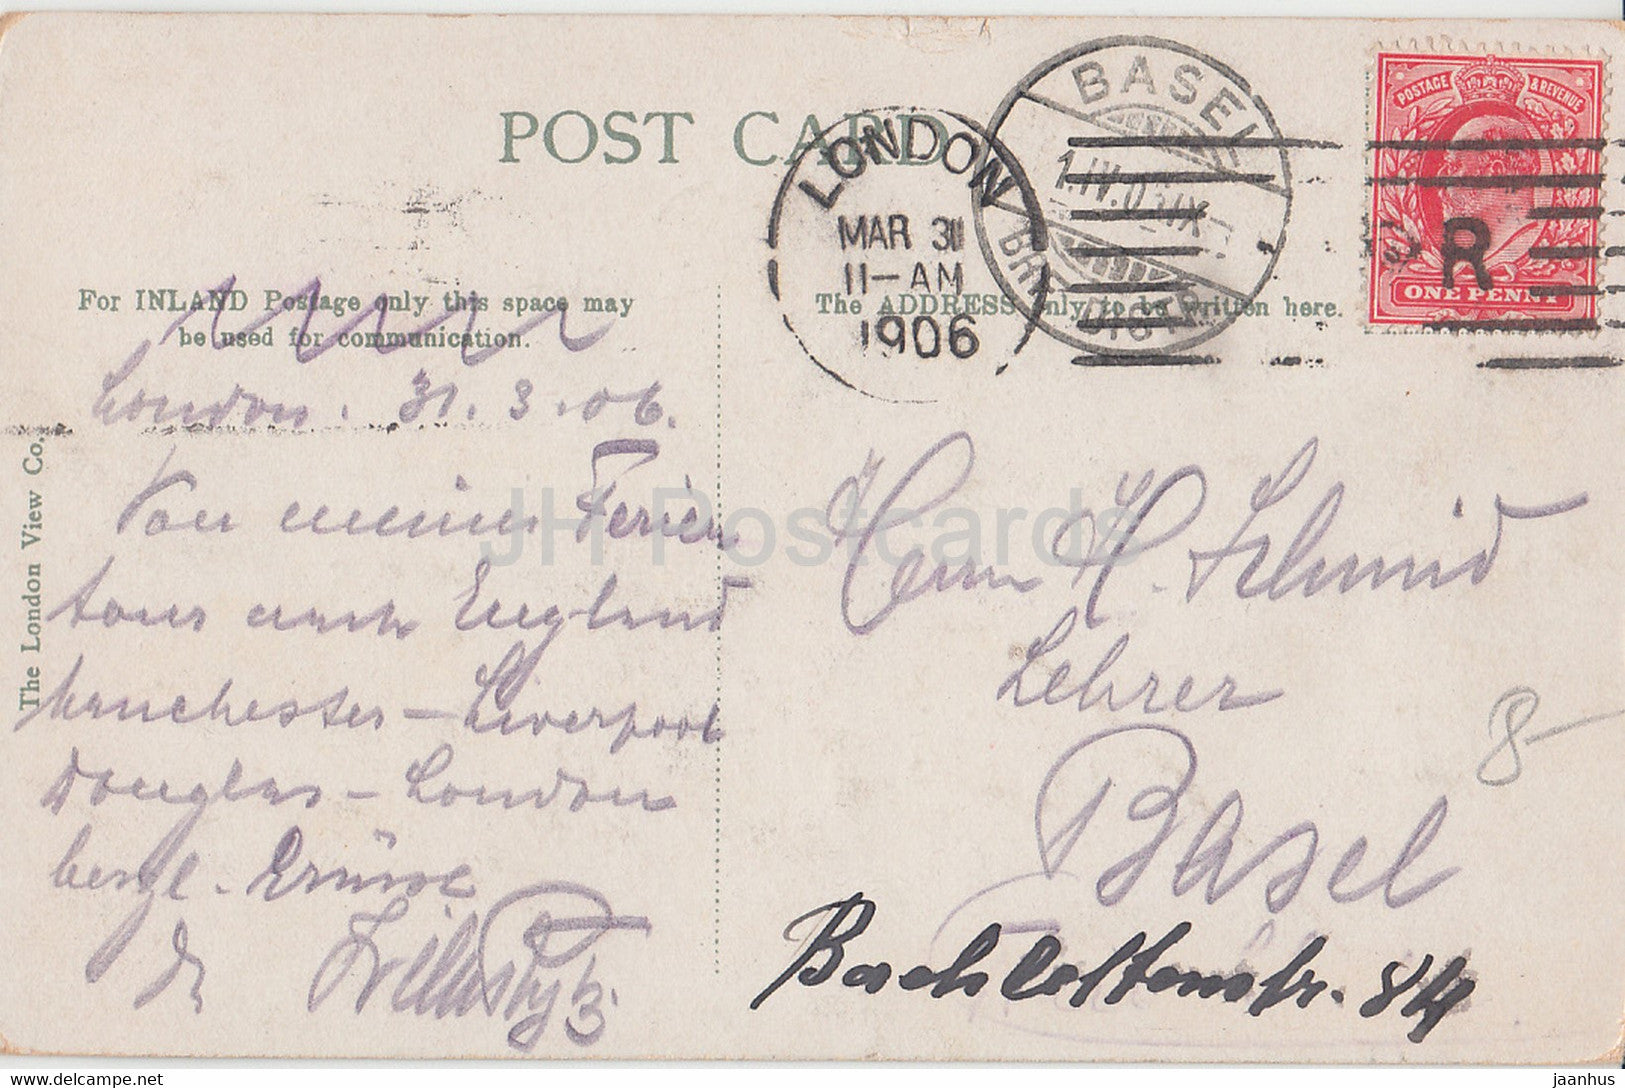 POST CARD
LONDON
MAR 31
11-AM
1906
BASEL
POSTAGE & REVENUE
ONE PENNY
R
For INLAND Postage only this space may
be used for communication.
The ADDRESS only to be written here.
The London View Co.
London. 31.3.06.
Von meiner Ferien
tour nach England
Manchester – Liverpool
Douglas – London
herzl. Grüsse
Dr
Herrn H. Schmid
Lehrer
Basel
Bachlettenstr. 84
8-
JH Postcards
delcampe.net
jaanhus